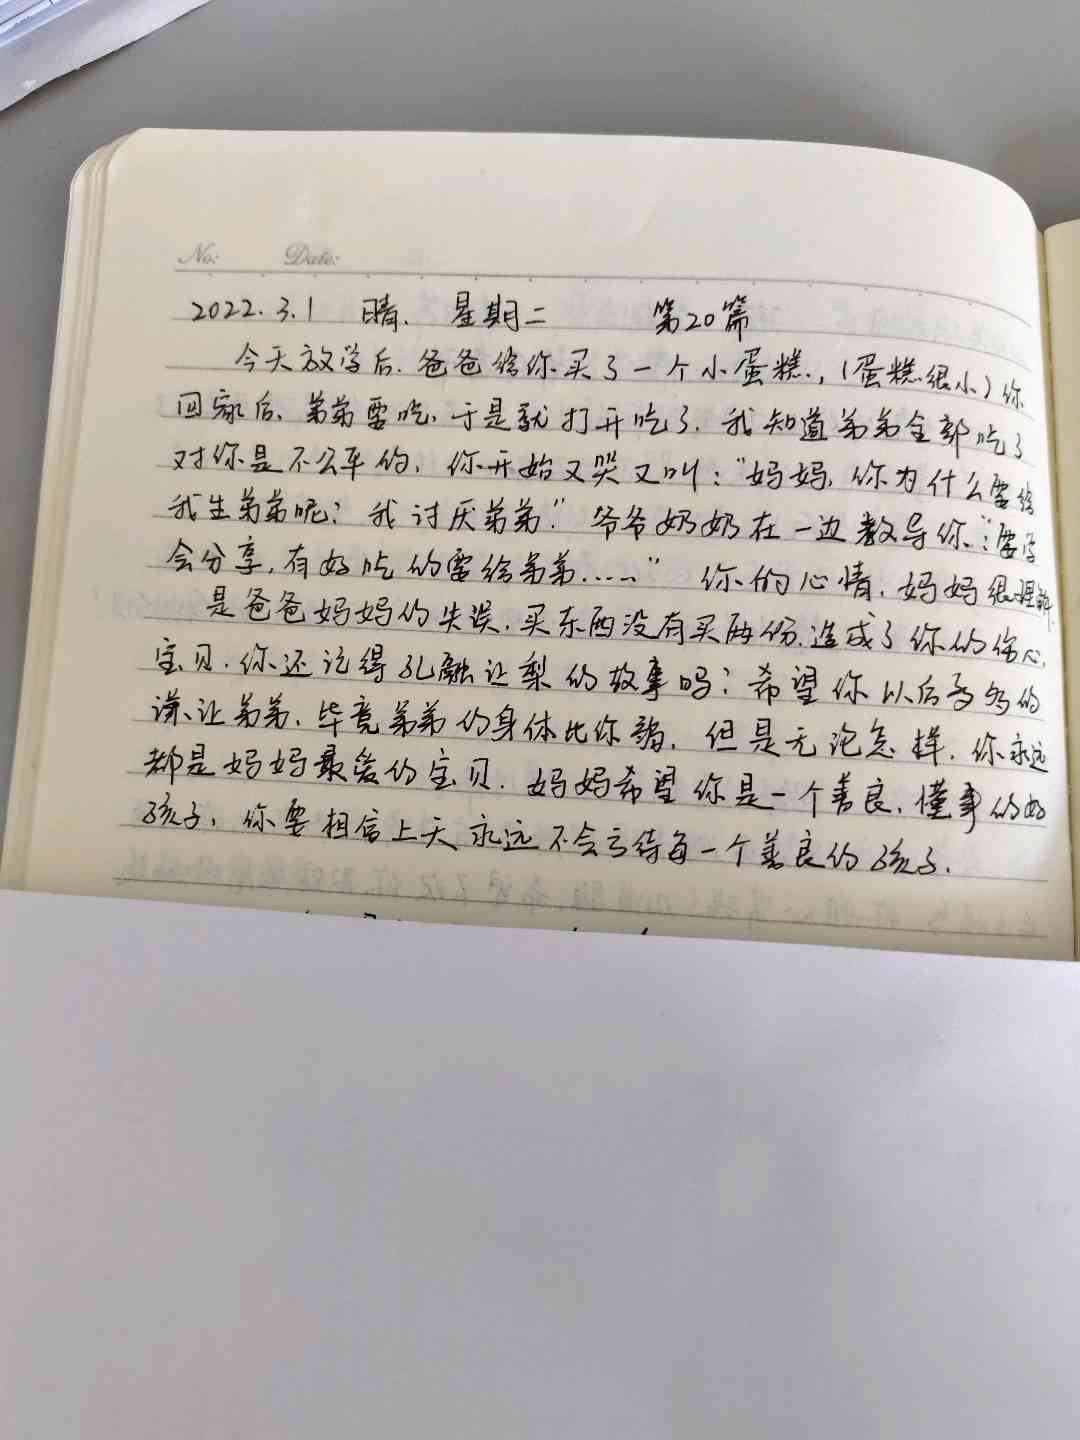 No: Date:
2022.3.1 晴. 星期二 第20篇
今天放学后.爸爸给你买了一个小蛋糕.,(蛋糕很小)你
回家后、弟弟要吃、于是就打开吃了.我知道弟弟全部吃了
对你是不公平的,你开始又哭又叫:“妈妈,你为什么要给
我生弟弟呢?我讨厌弟弟.”爷爷奶奶在一边教导你:“要学
会分享,有好吃的要给弟弟……”你的心情,妈妈很理解.
是爸爸妈妈的失误.买东西没有买两份.造成了你的伤心.
宝贝.你还记得孔融让梨的故事吗?希望你以后多多的
谦让弟弟、毕竟弟弟的身体比你弱.但是无论怎样.你永远
都是妈妈最爱的宝贝.妈妈希望你是一个善良、懂事的好
孩子,你要相信上天永远不会亏待每一个善良的孩子.